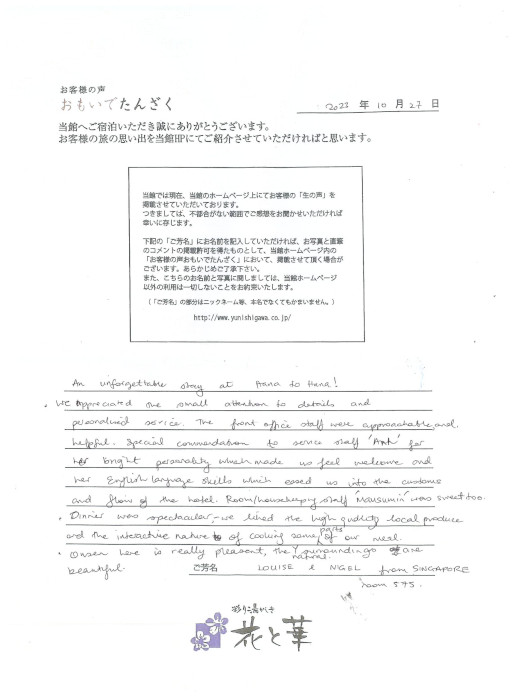 お客様の声
おもいでたんざく
2023 年 10 月 27 日
当館へご宿泊いただき誠にありがとうございます。
お客様の旅の思い出を当館HPにてご紹介させていただければと思います。
当館では現在、当館のホームページ上にてお客様の「生の声」を
掲載させていただいております。
つきましては、不都合がない範囲でご感想をお聞かせいただければ
幸いに存じます。
下記の「ご芳名」にお名前を記入していただければ、お写真と直筆
のコメントの掲載許可を得たものとして、当館ホームページ内の
「お客様の声おもいでたんざく」において、掲載させて頂く場合が
ございます。あらかじめご了承下さい。
また、こちらのお名前と写真に関しましては、当館ホームページ
以外の利用は一切しないことをお約束いたします。
（「ご芳名」の部分はニックネーム等、本名でなくてもかまいません。）
http://www.yunishigawa.co.jp/
An unforgettable stay at Hana to Hana!
• We appreciated the small attention to details and
personalised service. The front office staff were approachable and
helpful. Special commendation to service staff 'Anh' for
her bright personality which made us feel welcome and
her English language skills which eased us into the customs
and flow of the hotel. Room/housekeeping staff 'Mausumin' was sweet too.
• Dinner was spectacular – we liked the high quality local produce
and the interactive nature of cooking some parts of our meal.
• Onsen here is really pleasant, the natural surroundings are
beautiful.
ご芳名 LOUISE & NIGEL from SINGAPORE
room 575.
花と華